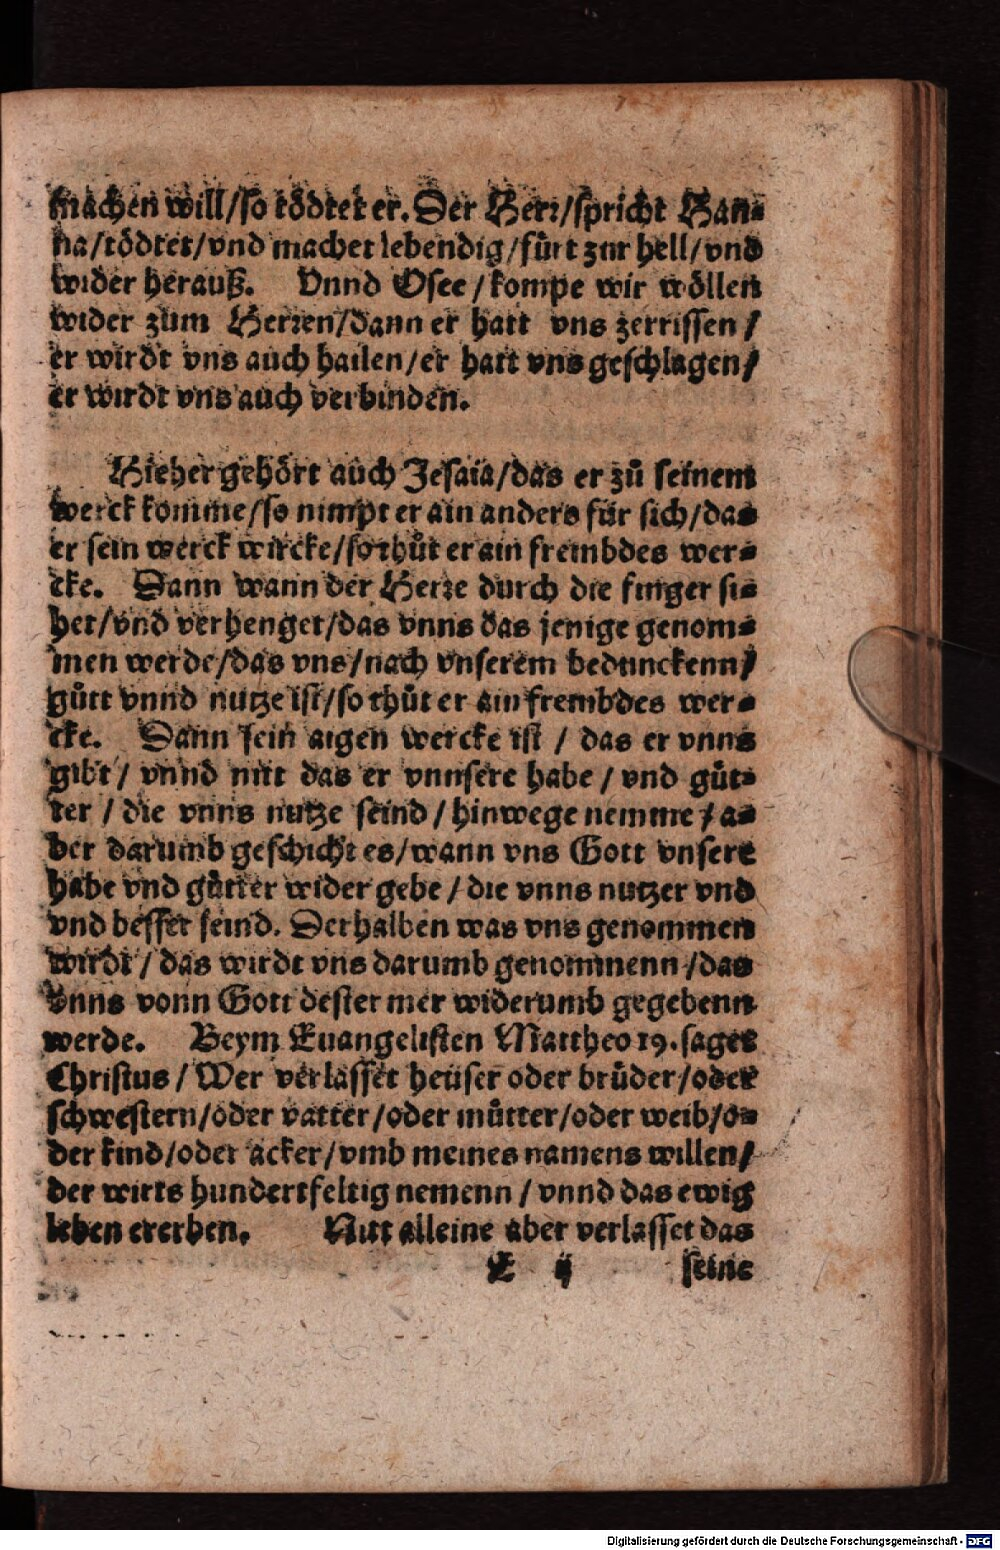 machen will/so tödtet er. Der Herr/spricht Han⸗
na/tödtet/vnd machet lebendig/fürt zur hell/vnd
wider herauß. Vnnd Osee/kompe wir wöllen
wider zum Herren/dann er hatt vns zerrissen/
er wirdt vns auch hailen/er hatt vns geschlagen/
er wirdt vns auch verbinden.
Hieher gehört auch Jesaia/das er zů seinem
werck komme/so nimpt er ain anders für sich/das
er sein werck wircke/so thůt er ain frembdes wer⸗
cke. Dann wann der Herre durch die finger si⸗
het/vnd verhenget/das vnns das jenige genom⸗
men werde/das vns/nach vnserem bedunckenn/
gůtt vnnd nutze ist/so thůt er ain frembdes wer⸗
cke. Dann sein aigen wercke ist/das er vnns
gibt/vnnd nitt das er vnnsere habe/vnd güt⸗
ter/die vnns nutze seind/hinwege nemme/a⸗
ber darumb geschicht es/wann vns Gott vnsere
habe vnd gütter wider gebe/die vnns nutzer vnd
vnd besser seind. Derhalben was vns genommen
wirdt/das wirdt vns darumb genommenn/das
vnns vonn Gott dester mer widerumb gegebenn
werde. Beym Euangelisten Mattheo 19. saget
Christus/Wer verlasset heüser oder brüder/oder
schwestern/oder vatter/oder můtter/oder weib/o⸗
der kind/oder äcker/vmb meines namens willen/
der wirts hundertfeltig nemenn/vnnd das ewig
leben ererben. Nitt alleine aber verlasset das
E ij seine
Digitalisierung gefördert durch die Deutsche Forschungsgemeinschaft - DFG